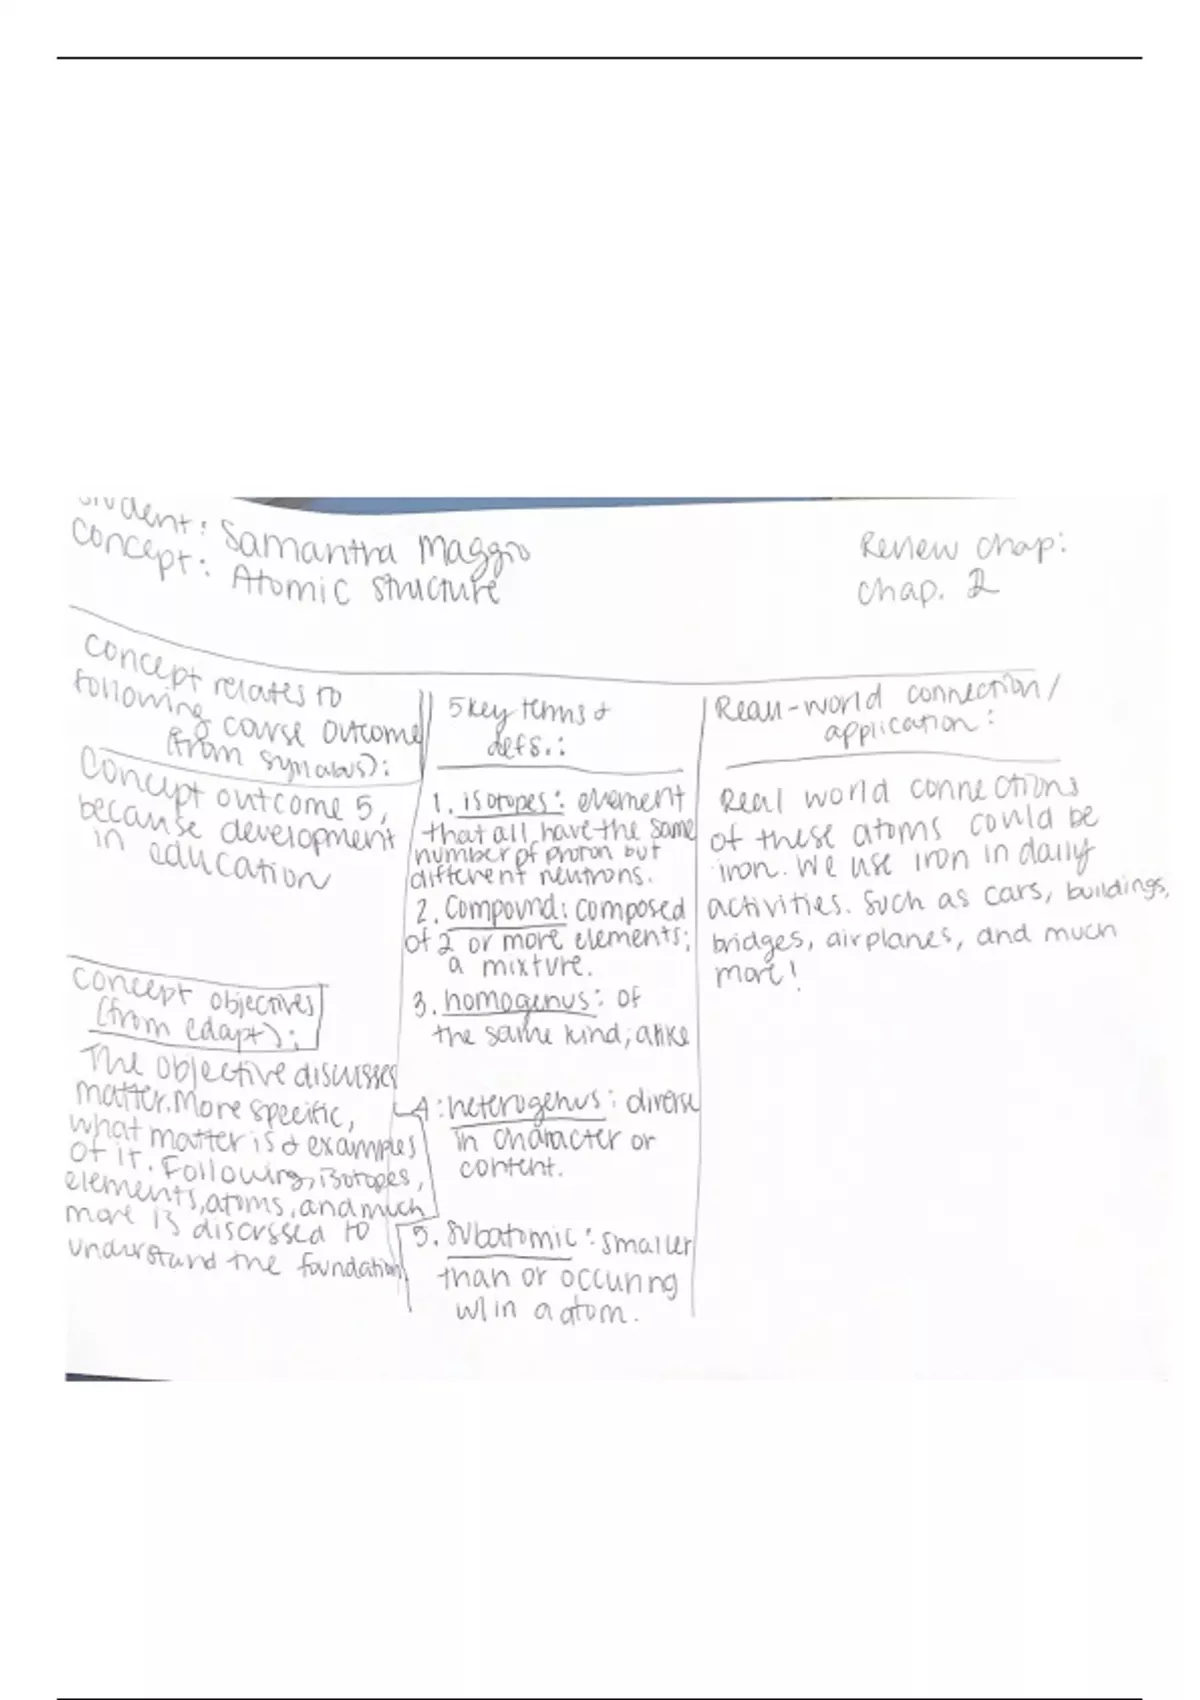 Student: Samantha Maggio
Concept: Atomic structure
Review chap:
chap. 2
Concept relates to
following course outcome
(from syllabus):
Concept outcome 5,
because development
in education
Concept objectives
(from edapt):
The objective discusses
matter. More specific,
what matter is & examples
of it. Following, isotopes,
elements, atoms, and much
more is discussed to
understand the foundation
5 key terms &
defs.:
1. isotopes: element
that all have the same
number of proton but
different neutrons.
2. Compound: composed
of 2 or more elements;
a mixture.
3. homogenus: of
the same kind; alike
4: heterogenus: diverse
in character or
content.
5. Subatomic: smaller
than or occuring
w/in a atom.
Reall-world connection/
application:
Real world connections
of these atoms could be
iron. We use iron in daily
activities. Such as cars, buildings,
bridges, airplanes, and much
more!